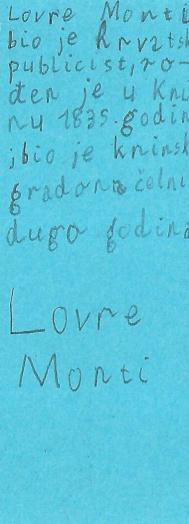 Lovre Monti
bio je hrvatsk
publicist, ro-
đen je u Kni
nu 1835. godin
i bio je kninsk
gradonačelni
dugo godina
Lovre
Monti